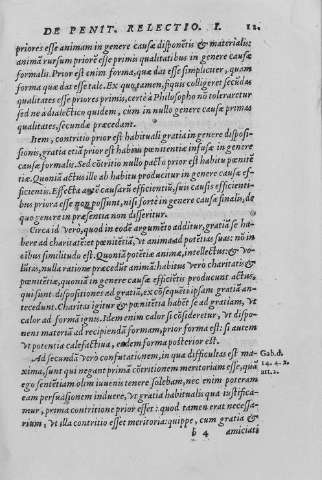 DE PENIT. RELECTIO. I. 12.
priores esse animam in genere causæ disponẽtis & materialis:
animã rursum priorẽ esse primis qualitatibus in genere causæ
formalis. Prior est enim forma, quæ dat esse simpliciter, quam
forma quæ dat esse tale. Ex quo tamen, siquis colligeret secũdas
qualitates esse priores primis, certè à Philosopho nõ tolerarctur
sed ne à dialectico quidem, cùm in nullo genere causæ primas
qualitates, secundæ præcedant.
Item, contritio prior est habituali gratia in genere disposi-
sionis, gratia etiã prior est habitu pœnitentiæ infusæ in genere
causæ formalis. Sed cõtritio nullo pacto prior est habitu pœnitẽ
tiæ. Quoniã actus ille ab habitu producitur in genere causæ ef-
ficientis. Effecta autẽ causarũ efficientiũ, suis causis efficienti-
bus priora esse non possunt, nisi fortè in genere causæ finalis, de
quo genere in præsentia non disseritur.
Circa id verò, quod in eodẽ argumẽto additur, gratiã se ha-
bere ad charitatẽ: et pœnitẽtiã, vt anima ad potẽtias suas: nõ in
eibus similitudo est. Quoniã potẽtiæ animæ, intellectus: & vo-
lũtas, nulla ratione præcedũt animã: habitus verò charitatis &
pœnitẽtiæ, quoniã in genere causæ efficiẽtis producunt actus,
qui sunt dispositiones ad gratiã, ex cõsequẽti ipsam gratiã an-
tecedunt. Charitas igitur & pœnitẽtia habẽt se ad gratiam, vt
calor ad formã ignis. Idem enim calor si cõsideretur, vt dispo-
nens materiã ad recipiendã formam, prior forma est: si autem
vt potentia calefactiua, eadem forma posterior est.
Ad secundã verò confutationem, in qua difficultas est ma-
xima, sunt qui negant primã cõtritionem meritoriam esse, quã
ego sentẽtiam olim iuuenis tenere solebam, nec enim poteram
eam persuasionem induere, vt gratia habitualis qua iustifica-
mur, prima contritione prior esset: quod tamen erat necessa-
rium, vt illa contritio esset meritoria: quippe, cum gratia &
Gab. d.
14. q. 2.
art. 2.
b 4 amiciati